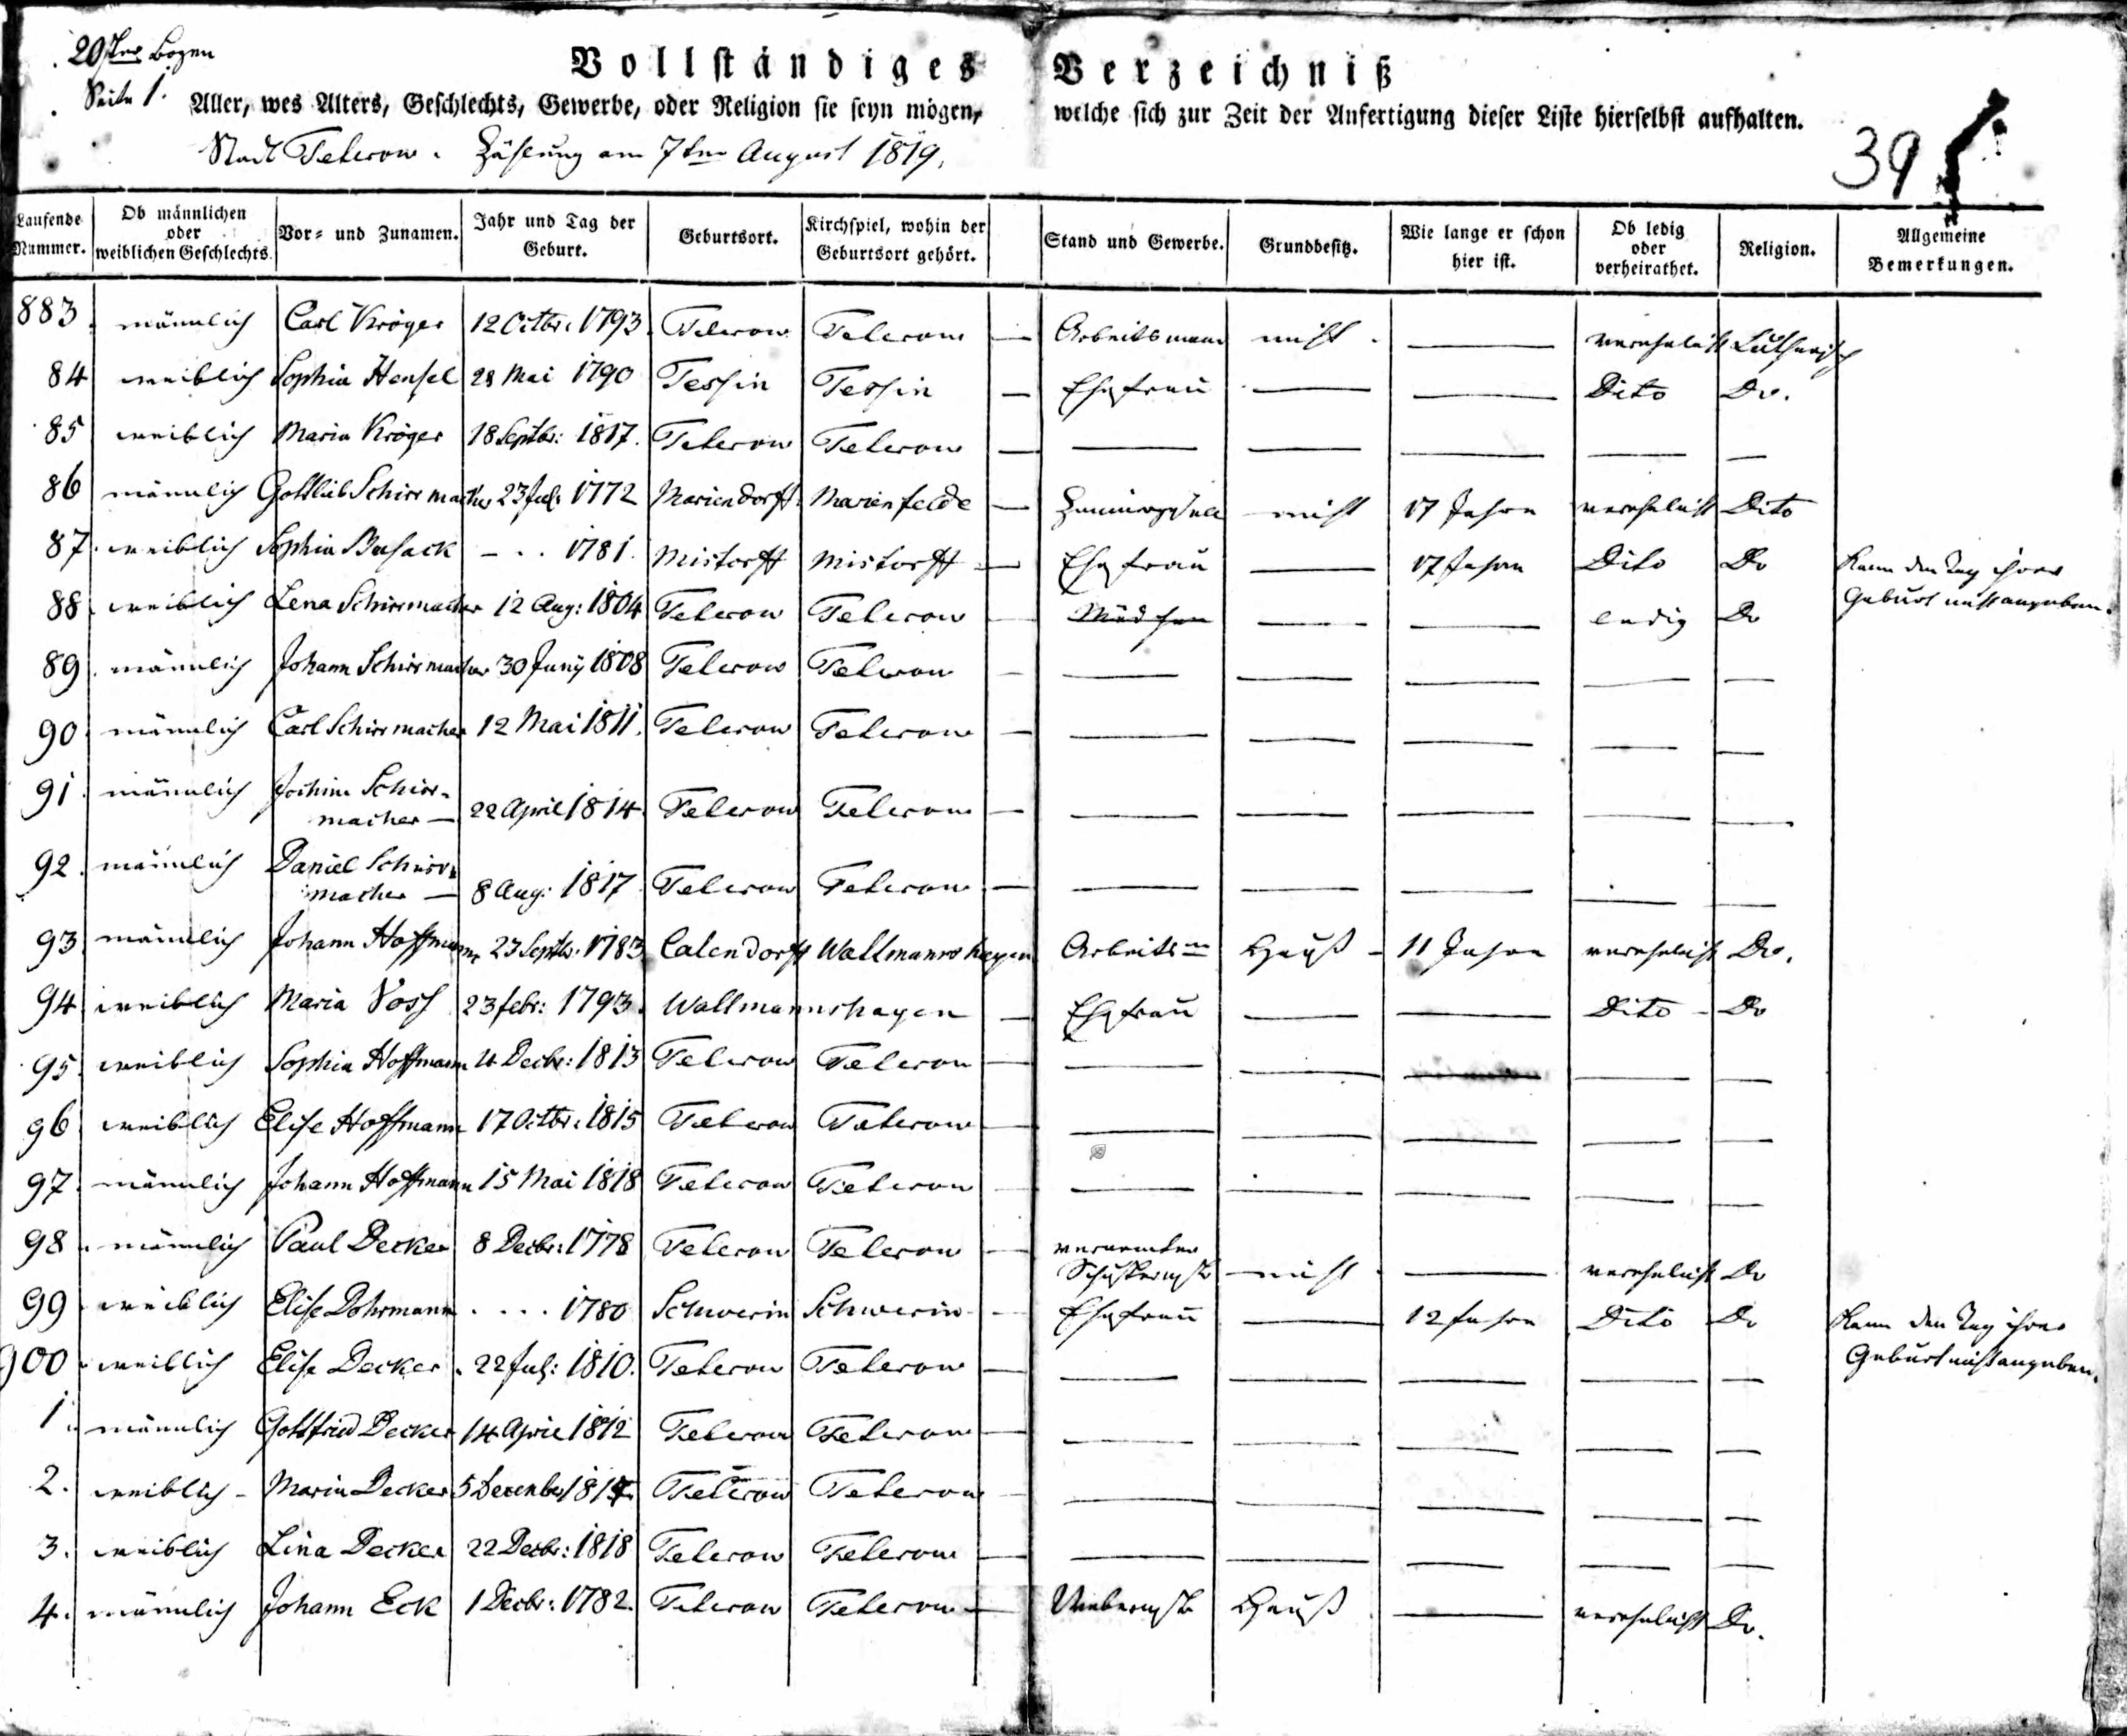 20ster Bogen
Seite 1.
Vollständiges Verzeichniß
Aller, wes Alters, Geschlechts, Gewerbe, oder Religion sie seyn mögen, welche sich zur Zeit der Anfertigung dieser Liste hierselbst aufhalten.
Stadt Teterow. Zählung am 7ten August 1819.
39
Laufende Nummer. Ob männlichen oder weiblichen Geschlechts. Vor- und Zunamen. Jahr und Tag der Geburt. Geburtsort. Kirchspiel, wohin der Geburtsort gehört. Stand und Gewerbe. Grundbesitz. Wie lange er schon hier ist. Ob ledig oder verheirathet. Religion. Allgemeine Bemerkungen.
883. männlich Carl Kröger 12 Octbr: 1793. Teterow Teterow — Arbeitsmann nicht. — verehelicht Lutherisch
84 weiblich Sophia Hensel 28 Mai 1790 Tessin Tessin — Ehefrau — — Dito Do.
85 weiblich Maria Kröger 18 Septbr: 1817. Teterow Teterow — — — — — —
86 männlich Gottlieb Schirrmacher 23 Jul: 1772 Mariendorff Marienfelde — nicht 17 Jahre verehelicht Dito
87. weiblich Sophia Busack - . . 1781. Mistorff Mistorff — Ehefrau — 17 Jahre Dito Do Kann den Tag ihrer Geburt nicht angeben.
88. weiblich Lena Schirrmacher 12 Aug: 1804 Teterow Teterow — Mädchen — — ledig Do
89. männlich Johann Schirrmacher 30 Juny 1808 Teterow Teterow — — — — — —
90. männlich Carl Schirrmacher 12 Mai 1811. Teterow Teterow — — — — — —
91. männlich Jochim Schirr-
macher — 22 April 1814 Teterow Teterow — — — — — —
92. männlich Daniel Schirr-
macher — 8 Aug: 1817 Teterow Teterow — — — — — —
93. männlich Johann Hoffmann 23 Septbr: 1783 Calendorff Wattmannshagen Arbeitsm Hauß - 11 Jahre verehelicht Do.
94 weiblich Maria Voss 23 febr: 1793. Wattmannshagen — Ehefrau — — Dito - Do
95. weiblich Sophia Hoffmann 4 Decbr: 1813 Teterow Teterow — — — — — —
96 weiblich Elise Hoffmann 17 Octbr: 1815 Teterow Teterow — — — — — —
97. männlich Johann Hoffmann 15 Mai 1818 Teterow Teterow — — — — — —
98. männlich Paul Decker 8 Decbr: 1778 Teterow Teterow — verarmter
Schustermstr nicht — verehelicht Do
99 weiblich Elise Dohrmann . . . . 1780 Schwerin Schwerin — Ehefrau — 12 Jahre Dito Do Kann den Tag ihrer Geburt nicht angeben.
900 weiblich Elise Decker. 22 Jul: 1810. Teterow Teterow — — — — — —
1. männlich Gottfried Decker 14 April 1812 Teterow Teterow — — — — — —
2. weiblich - Maria Decker 5 December Teterow Teterow — — — — — —
3. weiblich Lina Decker 22 Decbr: 1818 Teterow Teterow — — — — — —
4. männlich Johann Eck 1 Decbr: 1782. Teterow Teterow — Webermstr Hauß — verehelicht Do.